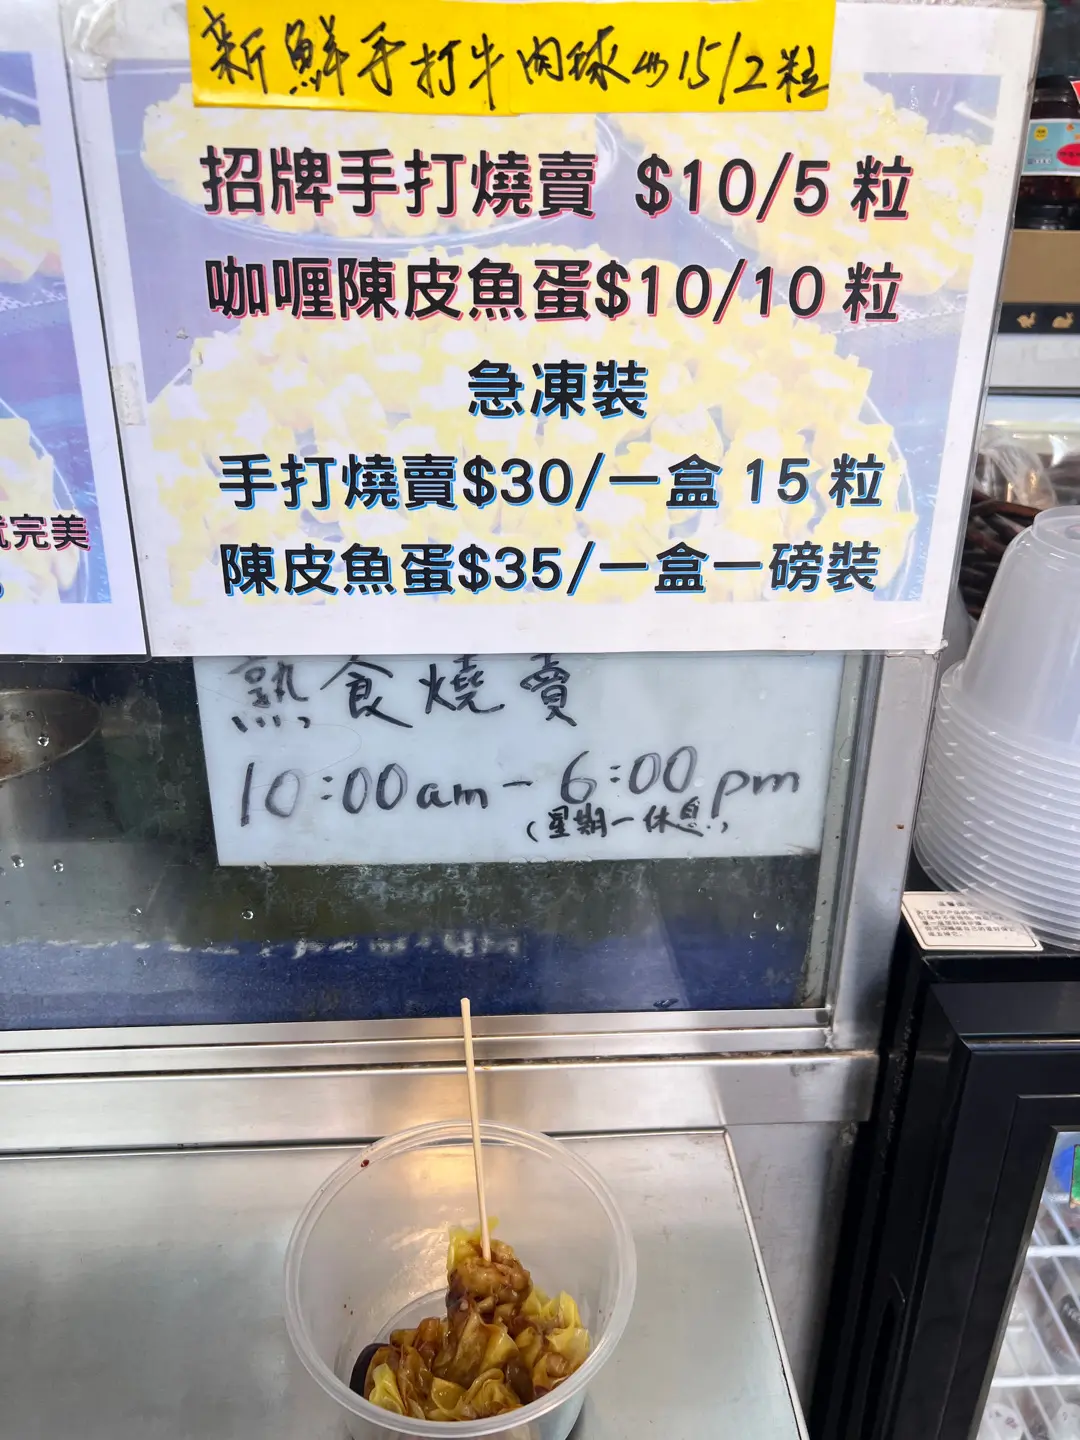 新鮮手打牛肉球 $15/2粒
招牌手打燒賣 $10/5 粒
咖喱陳皮魚蛋$10/10 粒
急凍裝
手打燒賣$30/一盒 15 粒
陳皮魚蛋$35/一盒一磅裝
完美
熟食燒賣
10:00am - 6:00pm
(星期一休息)